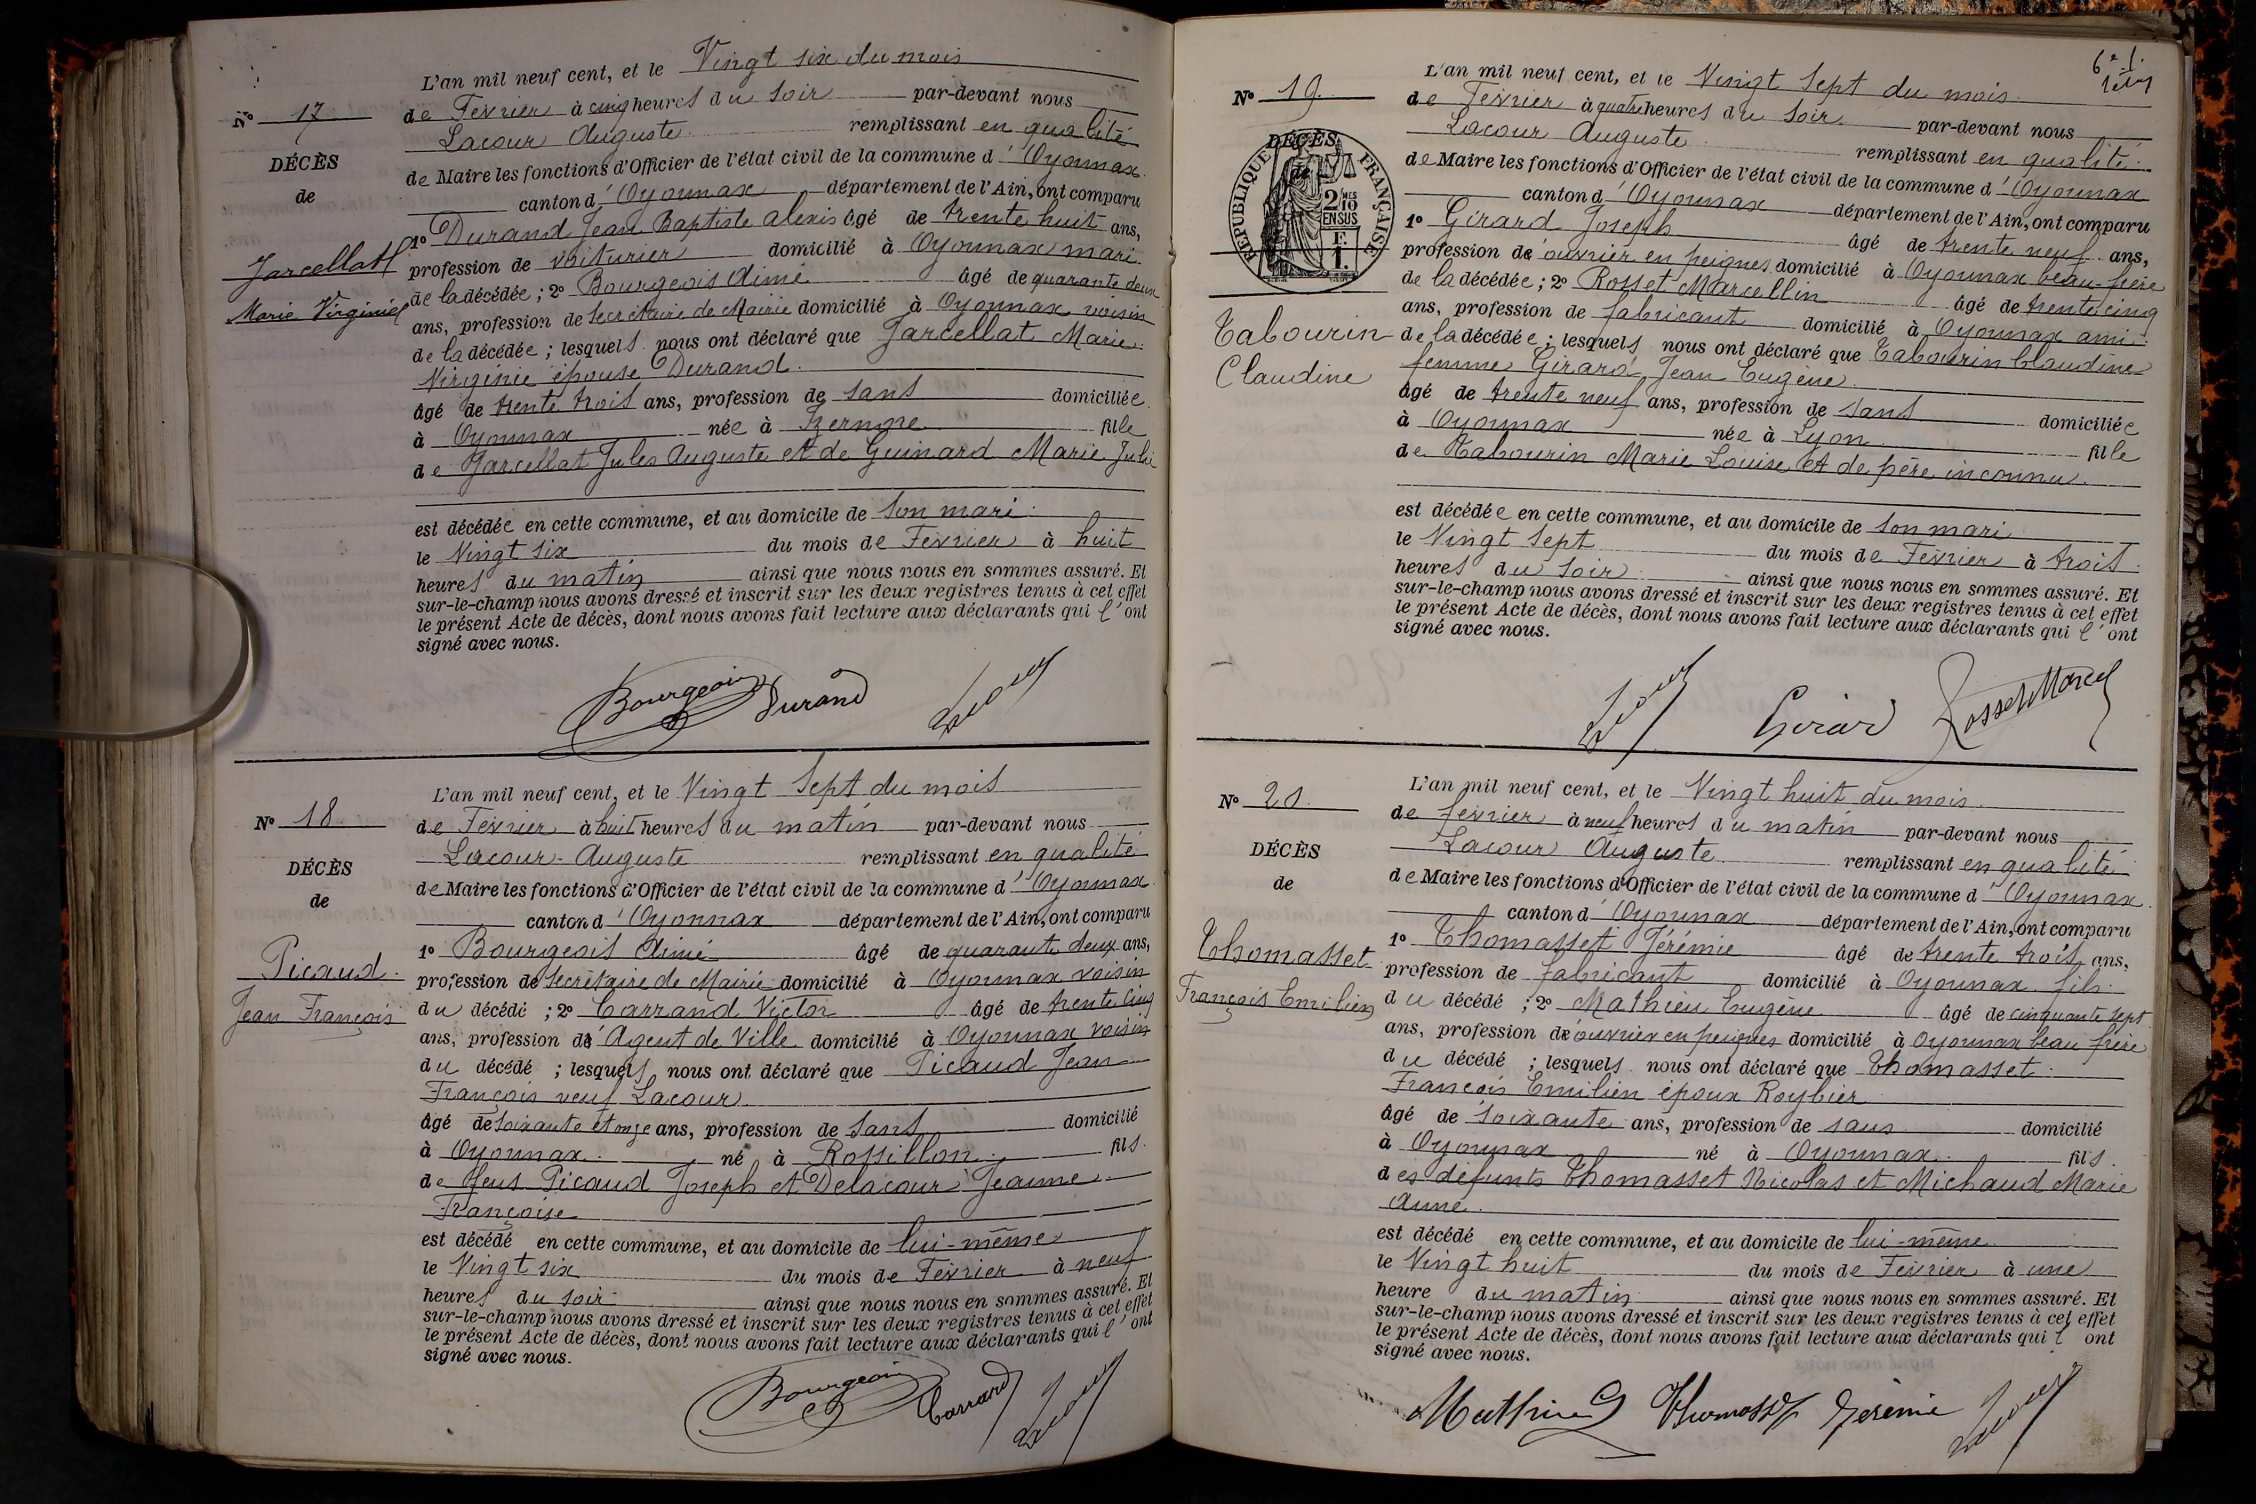 L'an mil neuf cent, et le Vingt six du mois
N° 17
de Février à cinq heures du soir par-devant nous
Lacour Auguste remplissant en qualité
DÉCÈS
de Maire les fonctions d'Officier de l'état civil de la commune d'Oyonnax
de
canton d'Oyonnax département de l'Ain, ont comparu
1° Durand Jean Baptiste Alexis âgé de trente huit ans,
Jarcellat
profession de voiturier domicilié à Oyonnax mari
de la décédée ; 2° Bourgeois Aimé âgé de quarante deux
Marie Virginie
ans, profession de Secrétaire de Mairie domicilié à Oyonnax voisin
de la décédée ; lesquels nous ont déclaré que Jarcellat Marie
Virginie épouse Durand
âgé de trente trois ans, profession de sans domiciliée
à Oyonnax née à Izernore fille
de Jarcellat Jules Auguste et de Guinard Marie Julie
est décédée en cette commune, et au domicile de son mari
le Vingt six du mois de Février à huit
heures du matin ainsi que nous nous en sommes assuré. Et
sur-le-champ nous avons dressé et inscrit sur les deux registres tenus à cet effet
le présent Acte de décès, dont nous avons fait lecture aux déclarants qui l'ont
signé avec nous.
Bourgeois Durand Lacour
L'an mil neuf cent, et le Vingt Sept du mois
N° 18
de Février à huit heures du matin par-devant nous
Lacour Auguste remplissant en qualité
DÉCÈS
de Maire les fonctions d'Officier de l'état civil de la commune d'Oyonnax
de
canton d'Oyonnax département de l'Ain, ont comparu
1° Bourgeois Aimé âgé de quarante deux ans,
Picaud
profession de Secrétaire de Mairie domicilié à Oyonnax voisin
Jean François
du décédé ; 2° Carrand Victor âgé de trente cinq
ans, profession d'Agent de Ville domicilié à Oyonnax voisin
du décédé ; lesquels nous ont déclaré que Picaud Jean
François veuf Lacour
âgé de soixante et onze ans, profession de sans domicilié
à Oyonnax né à Rossillon fils
de feus Picaud Joseph et Delacour Jeanne
Françoise
est décédé en cette commune, et au domicile de lui-même
le Vingt six du mois de Février à neuf
heures du soir ainsi que nous nous en sommes assuré. Et
sur-le-champ nous avons dressé et inscrit sur les deux registres tenus à cet effet
le présent Acte de décès, dont nous avons fait lecture aux déclarants qui l'ont
signé avec nous.
Bourgeois Carrand Lacour
L'an mil neuf cent, et le Vingt Sept du mois
N° 19
de Février à quatre heures du soir par-devant nous
Lacour Auguste remplissant en qualité
DÉCÈS
de
RÉPUBLIQUE FRANÇAISE
2/10 MES
EN SUS
F.
1.
de Maire les fonctions d'Officier de l'état civil de la commune d'Oyonnax
canton d'Oyonnax département de l'Ain, ont comparu
1° Girard Joseph âgé de trente neuf ans,
profession d'ouvrier en peignes domicilié à Oyonnax beau-frère
de la décédée ; 2° Rosset Marcellin âgé de trente cinq
ans, profession de fabricant domicilié à Oyonnax ami
Tabourin
de la décédée ; lesquels nous ont déclaré que Tabourin Claudine
Claudine
femme Girard Jean Eugène
âgé de trente neuf ans, profession de sans domiciliée
à Oyonnax née à Lyon fille
de Tabourin Marie Louise et de père inconnu
est décédée en cette commune, et au domicile de son mari
le Vingt Sept du mois de Février à trois
heures du soir ainsi que nous nous en sommes assuré. Et
sur-le-champ nous avons dressé et inscrit sur les deux registres tenus à cet effet
le présent Acte de décès, dont nous avons fait lecture aux déclarants qui l'ont
signé avec nous.
Lacour Girard Rosset Marcel
L'an mil neuf cent, et le Vingt huit du mois
N° 20
de février à neuf heures du matin par-devant nous
Lacour Auguste remplissant en qualité
DÉCÈS
de Maire les fonctions d'Officier de l'état civil de la commune d'Oyonnax
de
canton d'Oyonnax département de l'Ain, ont comparu
1° Thomasset Jérémie âgé de trente trois ans,
Thomasset
profession de fabricant domicilié à Oyonnax fils
François Emilien
du décédé ; 2° Mathieu Eugène âgé de cinquante sept
ans, profession d'ouvrier en peignes domicilié à Oyonnax beau frère
du décédé ; lesquels nous ont déclaré que Thomasset
François Emilien époux Roybier
âgé de soixante ans, profession de sans domicilié
à Oyonnax né à Oyonnax fils
des défunts Thomasset Nicolas et Michaud Marie
Anne
est décédé en cette commune, et au domicile de lui-même
le Vingt huit du mois de Février à une
heure du matin ainsi que nous nous en sommes assuré. Et
sur-le-champ nous avons dressé et inscrit sur les deux registres tenus à cet effet
le présent Acte de décès, dont nous avons fait lecture aux déclarants qui l'ont
signé avec nous.
Mathieu Thomasset Jérémie Lacour